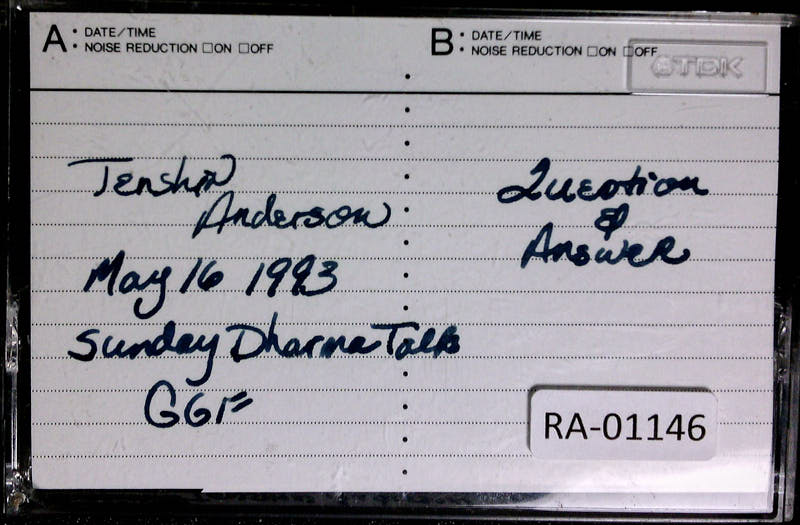 A • DATE/TIME
• NOISE REDUCTION □ON □OFF
B • DATE/TIME
• NOISE REDUCTION □ON □OFF
TDK
Tenshin
Anderson
May 16 1993
Sunday Dharma Talks
GGF
Question
&
Answer
RA-01146